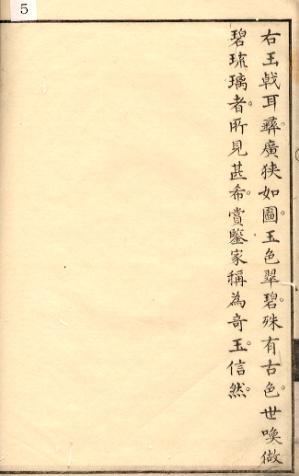 5
右玉戟耳彞。廣狹如圖。玉色翠碧。殊有古色。世喚做
碧琉璃者。所見甚希。賞鑒家稱為奇玉。信然。